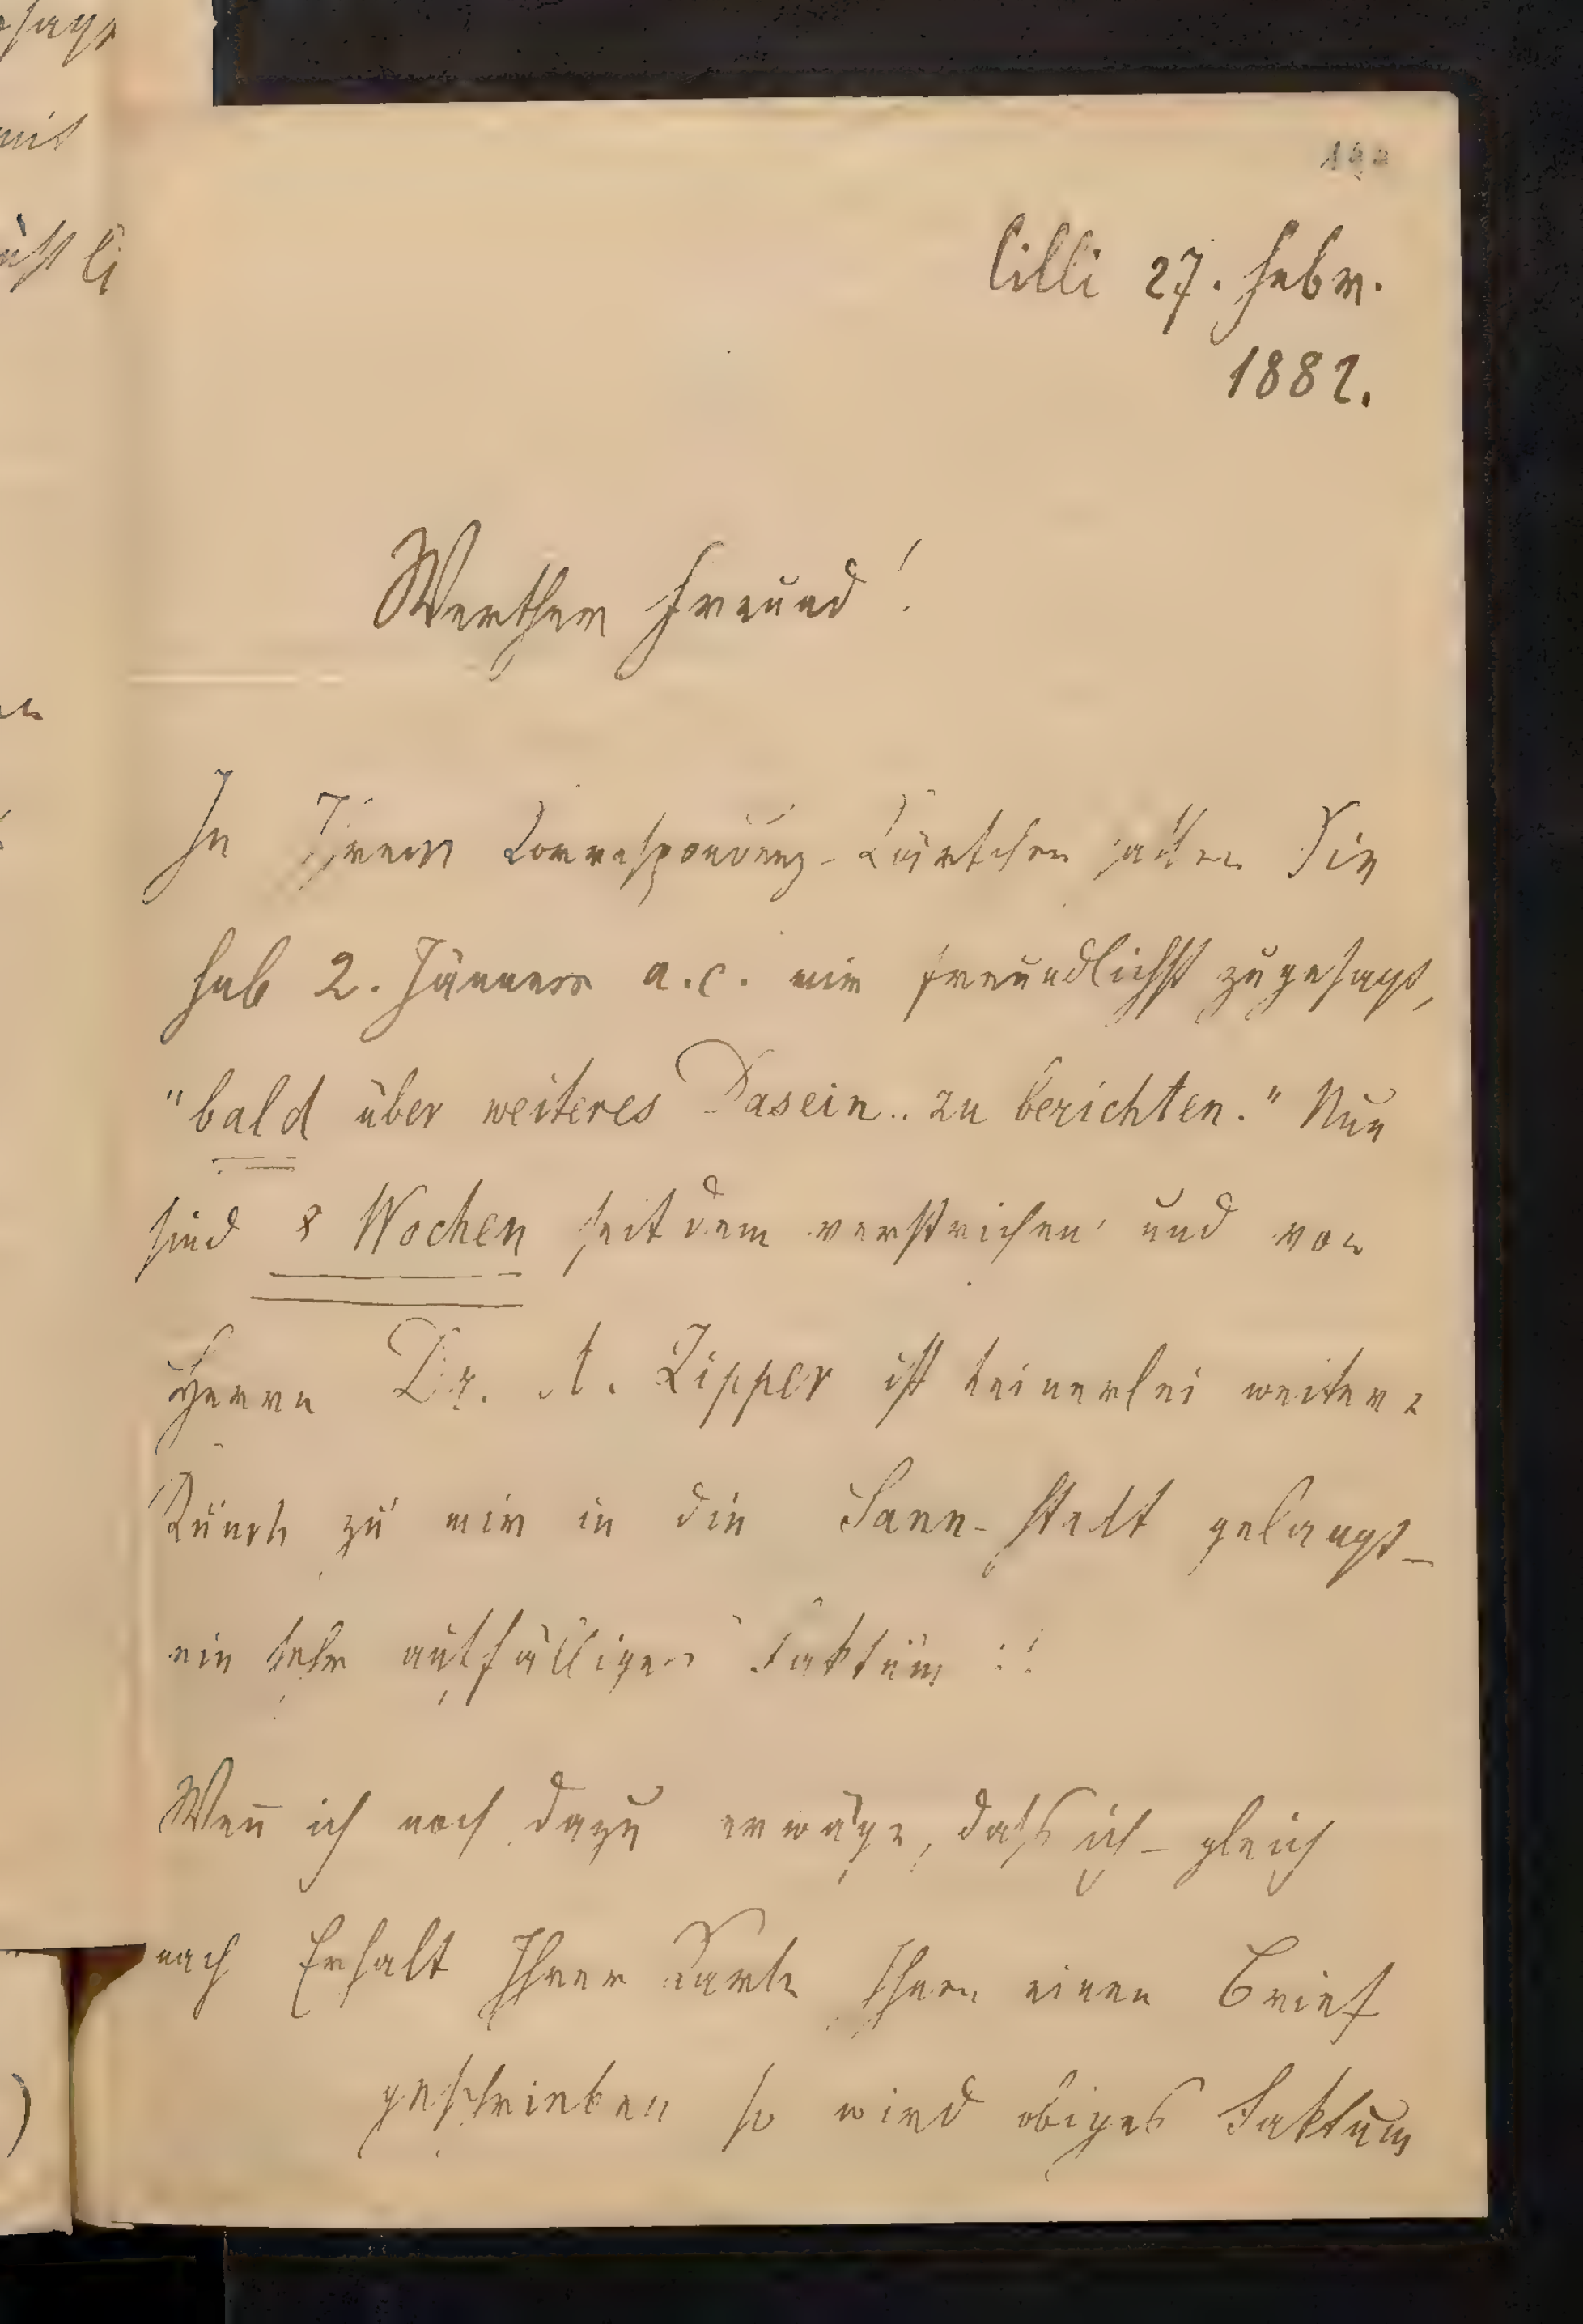 Cilli 27. Febr.
1882.
Werther Freund!
In Ihrem Correspondenz-Kärtchen hatten Sie
sub 2. Jänners a.c. mir freundlichst zugesagt,
"bald über weiteres Dasein.. zu berichten." Nun
sind 8 Wochen seitdem verstrichen und von
Herrn Dr. A. Zipper ist keinerlei weitere
Kunde zu mir in die Sann-Stadt gelangt–
ein sehr auffälliges Faktum!!
Weñ ich noch dazu erwäge, dass ich – gleich
nach Erhalt Ihrer Karte Ihnen einen Brief
geschrieben so wird obiges Faktum